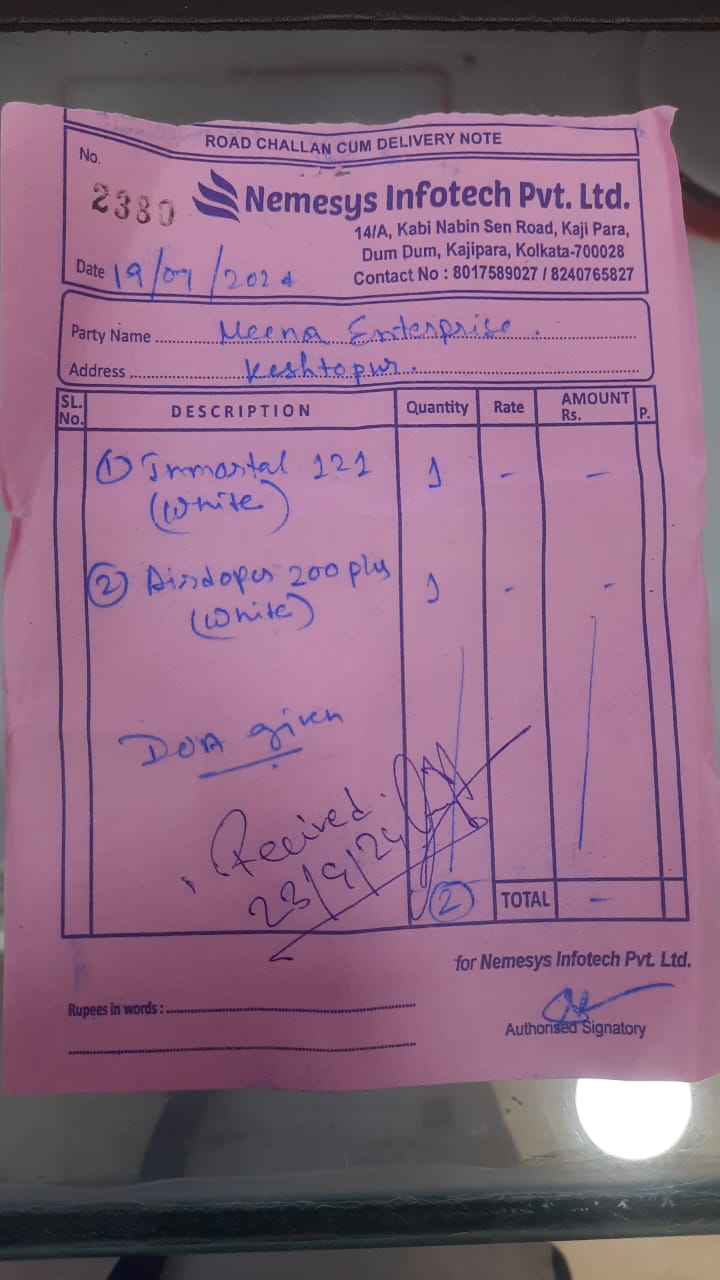 ROAD CHALLAN CUM DELIVERY NOTE
No.
2380
Nemesys Infotech Pvt. Ltd.
14/A, Kabi Nabin Sen Road, Kaji Para,
Dum Dum, Kajipara, Kolkata-700028
Contact No : 8017589027 / 8240765827
Date 19/09/2024
Party Name Meena Enterprise.
Address Keshtopur.
SL. No. DESCRIPTION Quantity Rate AMOUNT Rs. P.
① Immortal 121 1 - -
(White)
② Airdopes 200 plus 1 - -
(White)
DOA given
Received.
23/9/24
② TOTAL -
for Nemesys Infotech Pvt. Ltd.
Rupees in words :
Authorised Signatory